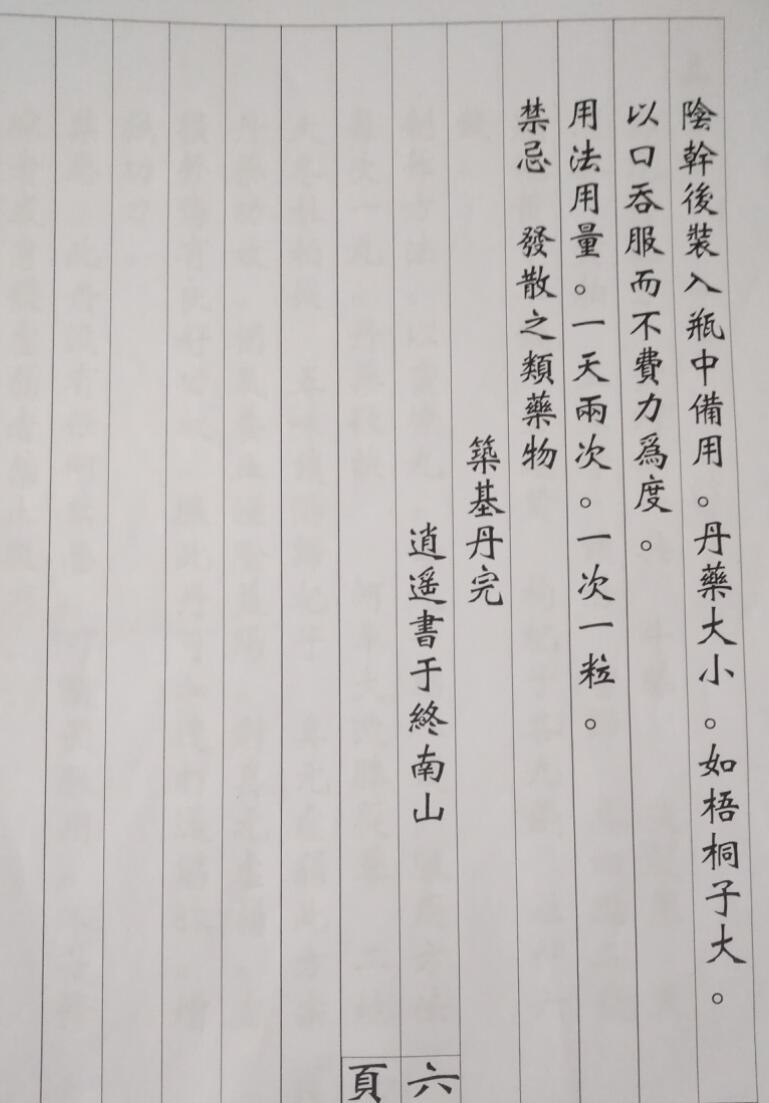 陰幹後裝入瓶中備用。丹藥大小。如梧桐子大。
以口吞服而不費力爲度。
用法用量。一天兩次。一次一粒。
禁忌　發散之類藥物
築基丹完
逍遥書于終南山
六
頁